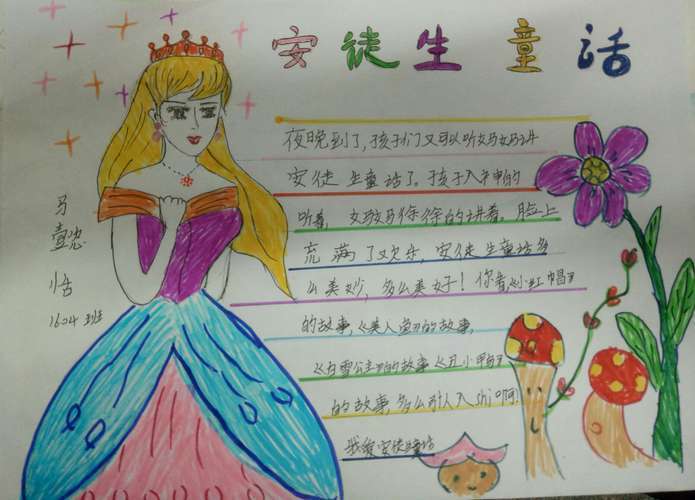 安徒生童话
夜晚到了,孩子们又可以听妈妈讲
安徒生童话了。孩子入神的
听着,妈妈徐徐的讲着。脸上
充满了欢乐,安徒生童话多
么美妙,多么美好!你看《小红帽》
的故事,《美人鱼》的故事,
《白雪公主》的故事《丑小鸭的》
的故事,多么引人入shi啊!
我爱安徒生童话
1604班